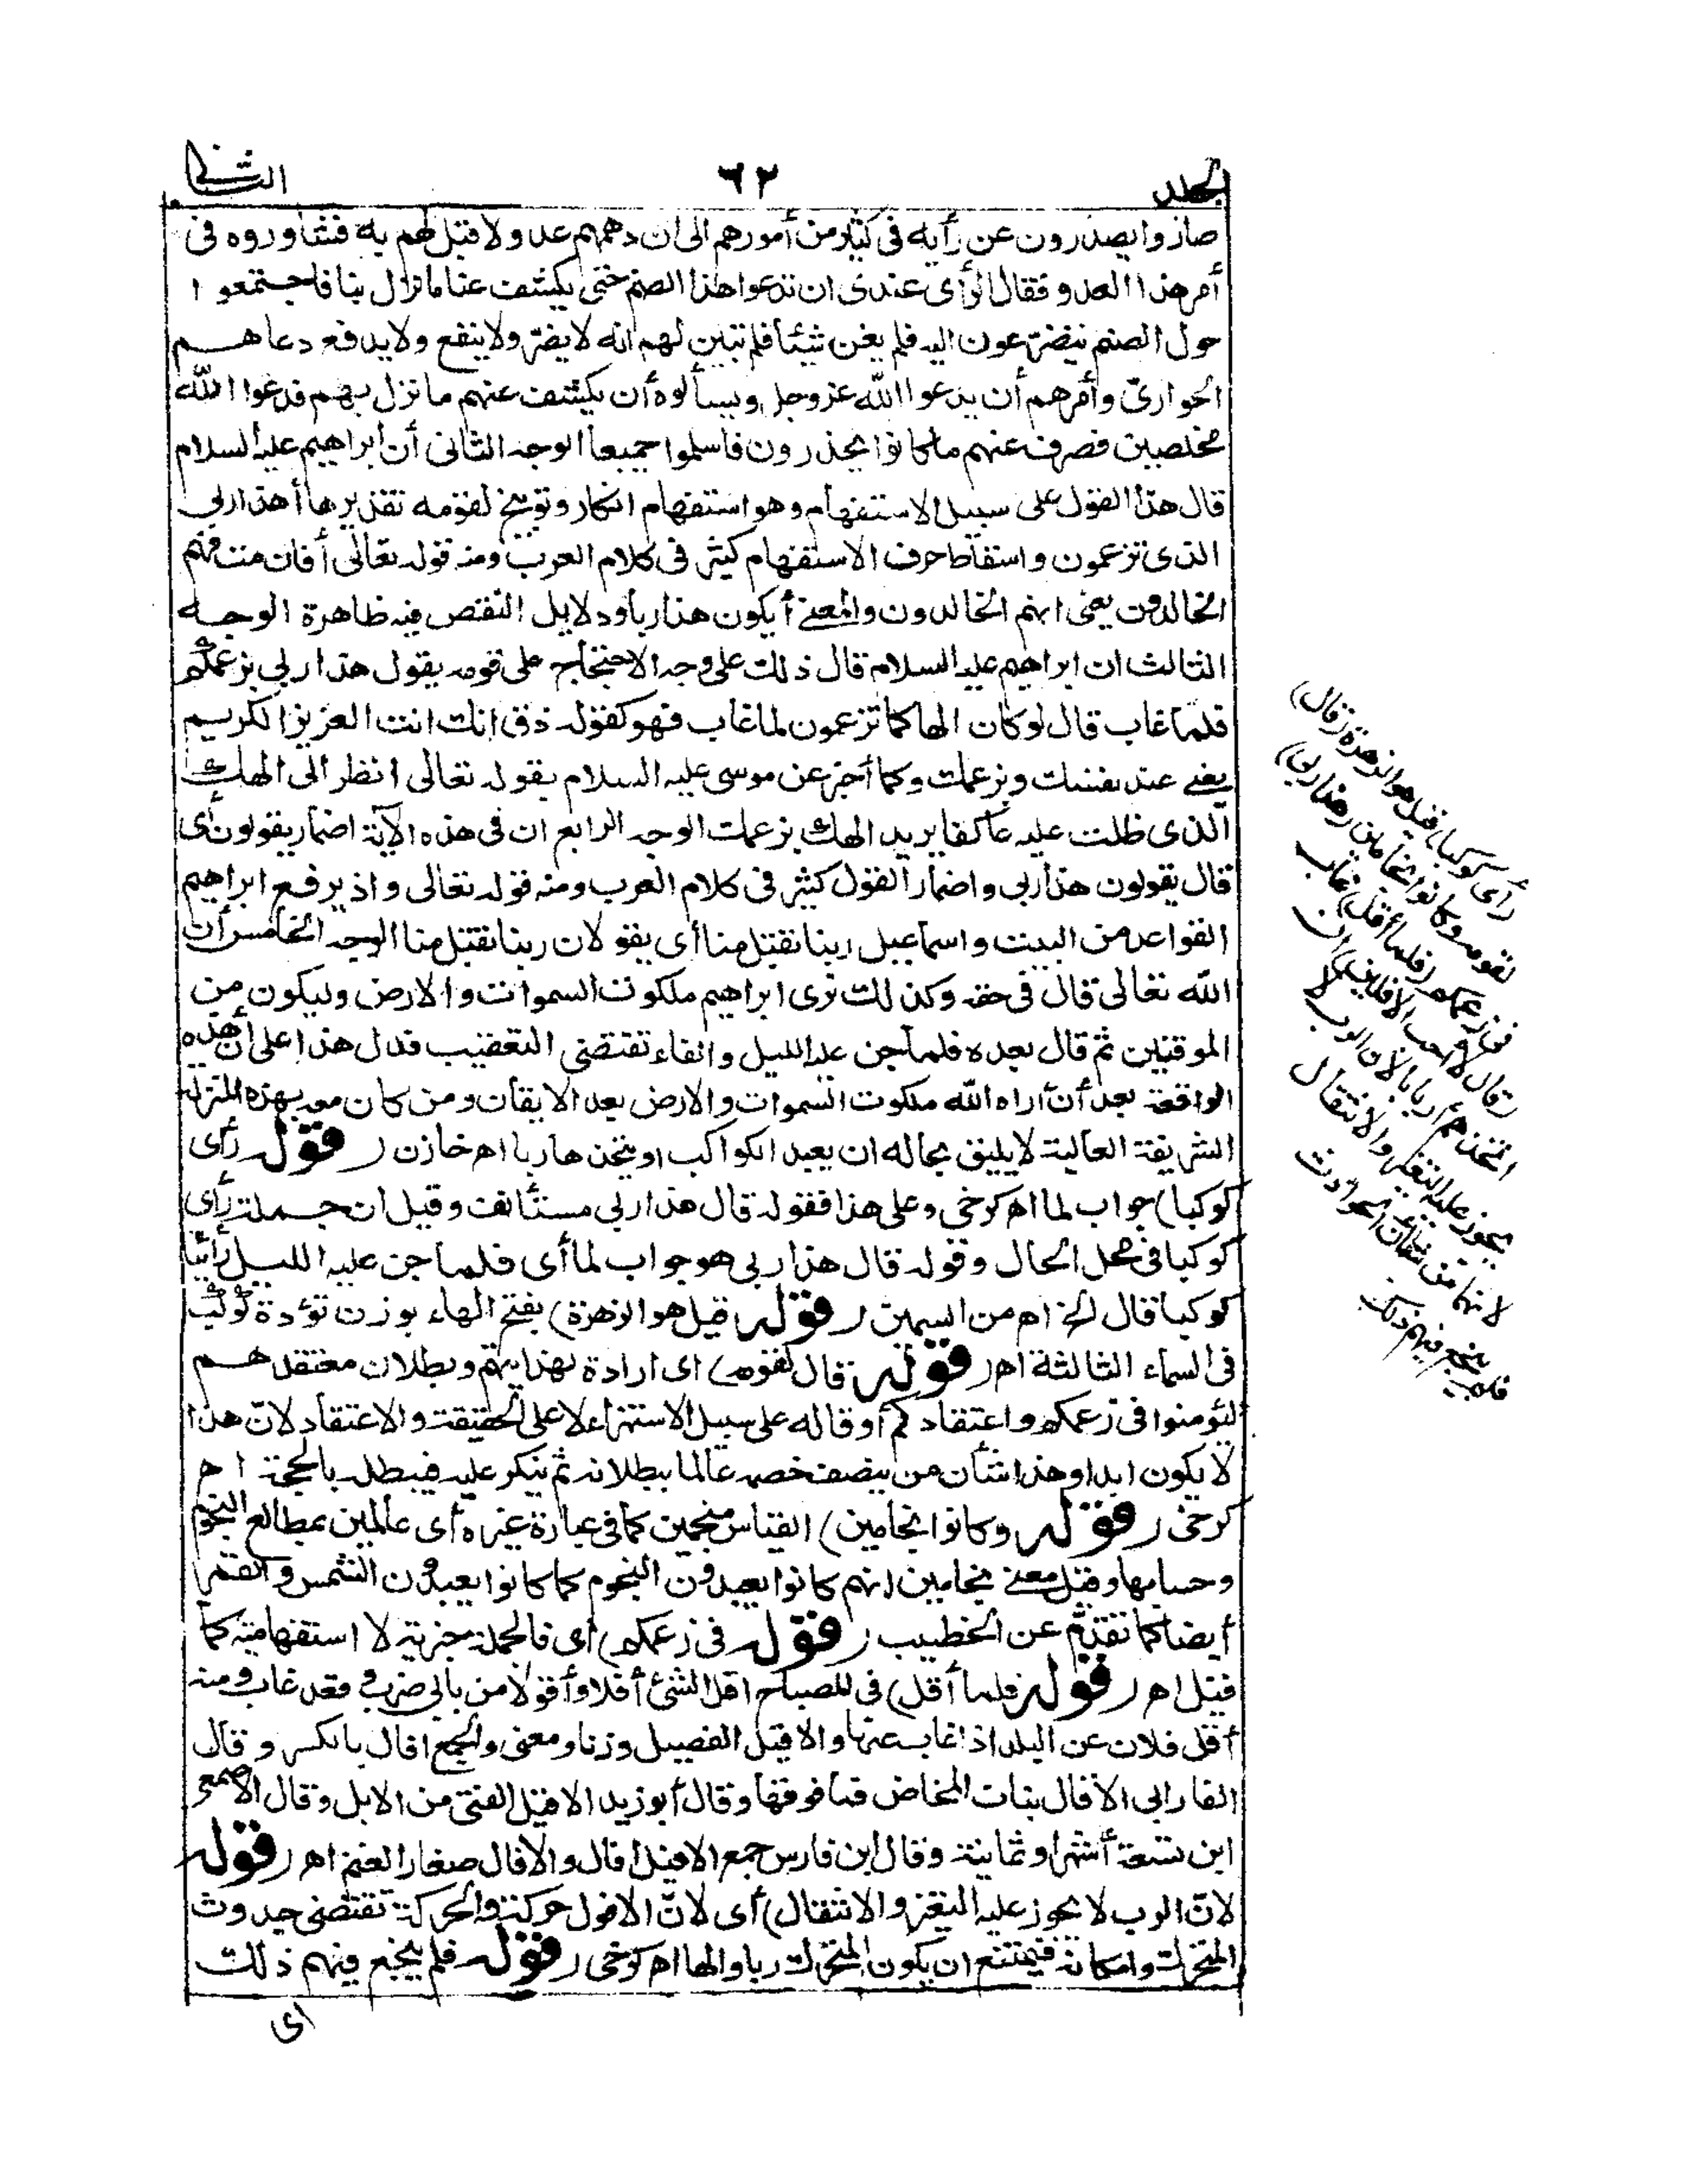 الجلد
٦٢
الثانی
صاروا يصدرون عن رأيه فى كثير من أمورهم الى ان دهمهم عدو لا قبل لهم به فشاوروه فى
أمر هذا العدو فقال الرأى عندى ان ندعوا هذا الصنم حتى يكشف عنا ما نزل بنا فاجتمعوا
حول الصنم يتضرعون اليه فلم يغن شيئا فلم تبين لهم انه لا يضر ولا ينفع ولا يدفع دعاهم
الحوارىّ وأمرهم أن يدعوا الله عز وجل ويسألوه أن يكشف عنهم ما نزل بهم فدعوا الله
مخلصين فصرف عنهم ما كانوا يحذرون فاسلموا جميعا الوجه الثانى أن ابراهيم عليه السلام
قال هذا القول على سبيل الاستفهام وهو استفهام انكار وتوبيخ لقومه تقديرها أهذا ربى
الذى تزعمون واسقاط حرف الاستفهام كثير فى كلام العرب ومنه قوله تعالى أفان مت فهم
الخالدون يعنى افهم الخالدون والمعنے أيكون هذا ربا ودلايل النقص فيه ظاهرة الوجه
الثالث ان ابراهيم عليه السلام قال ذلك على وجه الاحتجاج على قومه يقول هذا ربى بزعمكم
فلما غاب قال لو كان الها كما تزعمون لما غاب فهو كقوله ذق انك انت العزيز الكريم
يعنے عند نفسك وبزعمك وكما أخبر عن موسى عليه السلام بقوله تعالى انظر الى الهك
الذى ظلت عليه عاكفا يريد الهك بزعمك الوجه الرابع ان فى هذه الآية اضمار يقولون أى
قال يقولون هذا ربى واضمار القول كثير فى كلام العرب ومنه قوله تعالى واذ يرفع ابراهيم
القواعد من البيت واسماعيل ربنا تقبل منا أى يقولان ربنا تقبل منا الوجه الخامس أن
الله تعالى قال فى حقه وكذلك نرى ابراهيم ملكوت السموات والارض وليكون من
الموقنين ثم قال بعده فلما جن عليه الليل والفاء تقتضى التعقيب فدل هذا على أن هذه
الواقعة بعد أن أراه الله ملكوت السموات والارض بعد الايقان ومن كان معه بهذه المنزلة
الشريفة العالية لا يليق بحاله ان يعبد الكواكب او يتخذها ربا اهـ خازن (قوله رأى
كوكبا) جواب لما اهـ كرخى وعلى هذا فقوله قال هذا ربى مستأنف وقيل ان جملة رأى
كوكبا فى محل الحال وقوله قال هذا ربى هو جواب لما أى فلما جن عليه الليل رائيا
كوكبا قال الخ اهـ من السمين (قوله قيل هو الزهرة) بفتح الهاء بوزن تؤدة كوكب
فى السماء الثالثة اهـ (قوله قال لقومه) اى ارادة لهدايتهم وبطلان معتقدهم
ليؤمنوا فى زعمكم واعتقادكم أو قاله على سبيل الاستهزاء لا على الحقيقة والاعتقاد لانّ هذا
لا يكون ابدا وهذا شأن من ينصف خصمه عالما ببطلانه ثم ينكر عليه فيبطله بالحجة اهـ
كرخى (قوله وكانوا نجامين) القياس منجمين كما فى عبارة غيره أى عالمين بمطالع النجوم
وحسابها وقيل معنے نجامين انهم كانوا يعبدون النجوم كما كانوا يعبدون الشمس والقمر
أيضا كما تقدّم عن الخطيب (قوله فى زعمكم) أى فالجملة خبرية لا استفهامية كما
قيل اهـ (قوله فلما أفل) فى المصباح افل الشئ أفلا وأفولا من بابى ضرب وقعد غاب ومنه
أفل فلان عن البلد اذا غاب عنها والافيل الفصيل وزنا ومعنى والجمع افال بالكسر وقال
الفارابى الافال بنات المخاض فما فوقها وقال أبو زيد الافيل الفتى من الابل وقال الاصمعى
ابن تسعة أشهر او ثمانية وقال ابن فارس جمع الافيل افال والافال صغار الغنم اهـ (قوله
لانّ الرب لا يجوز عليه التغير والانتقال) أى لانّ الافول حركة والحركة تقتضى حدوث
المتحرك وامكانه فيمتنع ان يكون المتحرك ربا والها اهـ كرخى (قوله فلم ينجع فيهم ذلك
اى
رأى كوكبا) قيل هو الزهرة (قال)
لقومه وكانوا نجامين (هذا ربى)
فى زعمكم (فلما أفل) غاب
(قال لا احب الآفلين) ان
اتخذهم أربابا لان الرب لا
يجوز عليه التغير والانتقال
لانهما من شان الحوادث
فلم ينجع فيهم ذلك